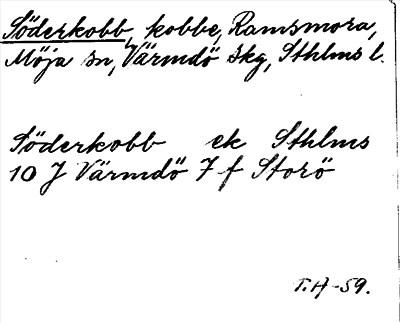 Söderkobb, kobbe, Ramsmora,
Möja sn, Värmdö skg, Sthlms l.
Söderkobb ek Sthlms
10 J Värmdö 7 f Storö
T.H-59.